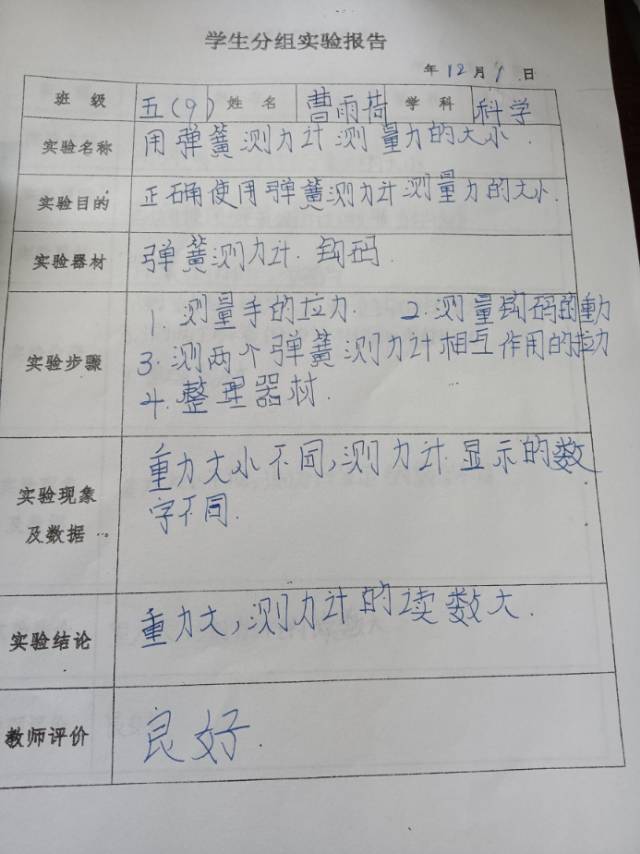 学生分组实验报告
年 12 月 1 日
班 级 五(9) 姓 名 曹雨荷 学 科 科学
实验名称 用弹簧测力计测量力的大小
实验目的 正确使用弹簧测力计测量力的大小.
实验器材 弹簧测力计. 钩码
实验步骤 1. 测量手的拉力. 2. 测量钩码的重力
3. 测两个弹簧测力计相互作用的拉力
4. 整理器材.
实验现象及数据 重力大小不同,测力计显示的数
字不同.
实验结论 重力大,测力计的读数大.
教师评价 良好.